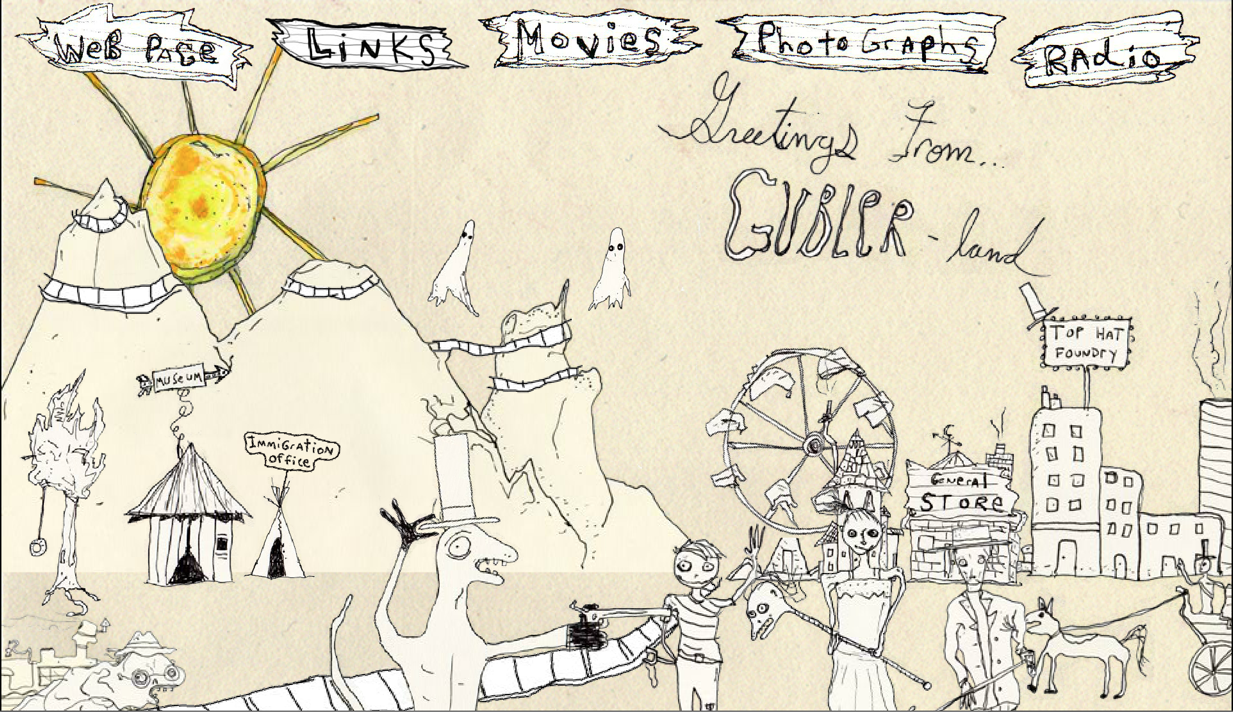 WEB PAGE
LINKS
MOVIES
PHOTOGRAPHS
RADio
Greetings From...
GUBLER-land
TOP HAT
FOUNDRY
MUSEUM
IMMIGRATION
OFFICE
GENERAL
STORE